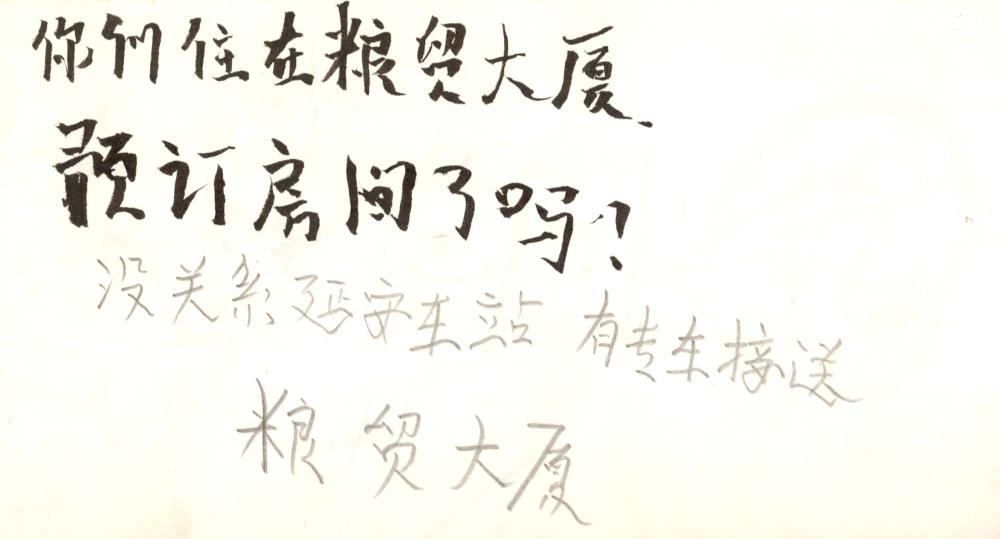 你们住在粮贸大厦.
预订房间了吗?
没关系延安车站 有专车接送
粮贸大厦